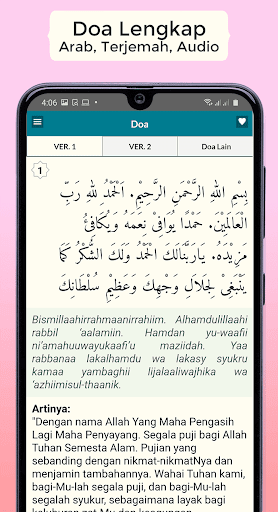 Doa Lengkap
Arab, Terjemah, Audio
4:06
Doa
VER. 1
VER. 2
Doa Lain
1
بِسْمِ اللهِ الرَّحْمٰنِ الرَّحِيْمِ. اَلْحَمْدُ لِلهِ رَبِّ
الْعَالَمِيْنَ. حَمْدًا يُوَافِيْ نِعَمَهُ وَيُكَافِئُ
مَزِيْدَهُ. يَارَبَّنَالَكَ الْحَمْدُ وَلَكَ الشُّكْرُ كَمَا
يَنْبَغِيْ لِجَلَالِ وَجْهِكَ وَعَظِيْمِ سُلْطَانِكَ
Bismillaahirrahmaanirrahiim. Alhamdulillaahi
rabbil 'aalamiin. Hamdan yu-waafii
ni'amahuuwayukaafi'u maziidah. Yaa
rabbanaa lakalhamdu wa lakasy syukru
kamaa yambaghii lijalaaliwajhika wa
'azhiimisul-thaanik.
Artinya:
"Dengan nama Allah Yang Maha Pengasih
Lagi Maha Penyayang. Segala puji bagi Allah
Tuhan Semesta Alam. Pujian yang
sebanding dengan nikmat-nikmatNya dan
menjamin tambahannya. Wahai Tuhan kami,
bagi-Mu-lah segala puji, dan bagi-Mu-lah
segalah syukur, sebagaimana layak bagi
keluhuran zat-Mu dan keagungan